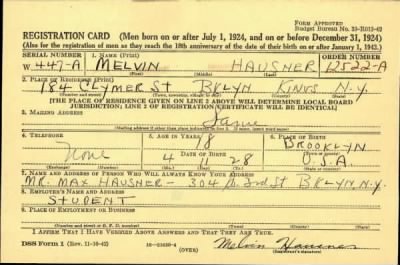 FORM APPROVED
Budget Bureau No. 33-R012-42
REGISTRATION CARD (Men born on or after July 1, 1924, and on or before December 31, 1924)
(Also for the registration of men as they reach the 18th anniversary of the date of their birth on or after January 1, 1943.)
SERIAL NUMBER 1. NAME (Print) ORDER NUMBER
W 447-A MELVIN HAUSNER 12522-A
(First) (Middle) (Last)
2. PLACE OF RESIDENCE (Print)
184 CLYMER ST BKLYN KINGS N.Y.
(Number and street) (Town, township, village, or city) (County) (State)
[THE PLACE OF RESIDENCE GIVEN ON LINE 2 ABOVE WILL DETERMINE LOCAL BOARD
JURISDICTION; LINE 2 OF REGISTRATION CERTIFICATE WILL BE IDENTICAL]
3. MAILING ADDRESS
Same
(Mailing address if other than place indicated on line 2. If same, insert word same)
4. TELEPHONE 5. AGE IN YEARS 6. PLACE OF BIRTH
18 BROOKLYN
None DATE OF BIRTH
4 11 28 U.S.A.
(Exchange) (Number) (Mo.) (Day) (Yr.) (State or country)
7. NAME AND ADDRESS OF PERSON WHO WILL ALWAYS KNOW YOUR ADDRESS
MR. MAX HAUSNER - 304 3rd ST BKLYN N.Y.
8. EMPLOYER'S NAME AND ADDRESS
STUDENT
9. PLACE OF EMPLOYMENT OR BUSINESS
(Number and street or R. F. D. number) (Town) (County) (State)
I AFFIRM THAT I HAVE VERIFIED ABOVE ANSWERS AND THAT THEY ARE TRUE.
DSS Form 1 (Rev. 11-16-42) (OVER) Melvin Hausner
(Registrant's signature)